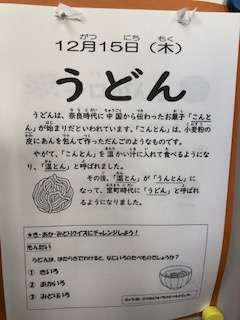 12月15日（木）
うどん
うどんは、奈良時代に中国から伝わったお菓子「こんと
ん」が始まりだといわれています。「こんとん」は、小麦粉の
皮にあんを包んで作っただんごのようなものです。
やがて、「こんとん」を温かい汁に入れて食べるようにな
り、「温とん」と呼ばれました。
その後、「温とん」が「うんとん」に
なって、室町時代に「うどん」と呼ばれ
るようになりました。
★き・あか・みどりクイズにチャレンジしよう！
もんだい
うどんは、はたらきでわけると、なにいろのたべものでしょうか？
① きいろ
② あかいろ
③ みどりいろ